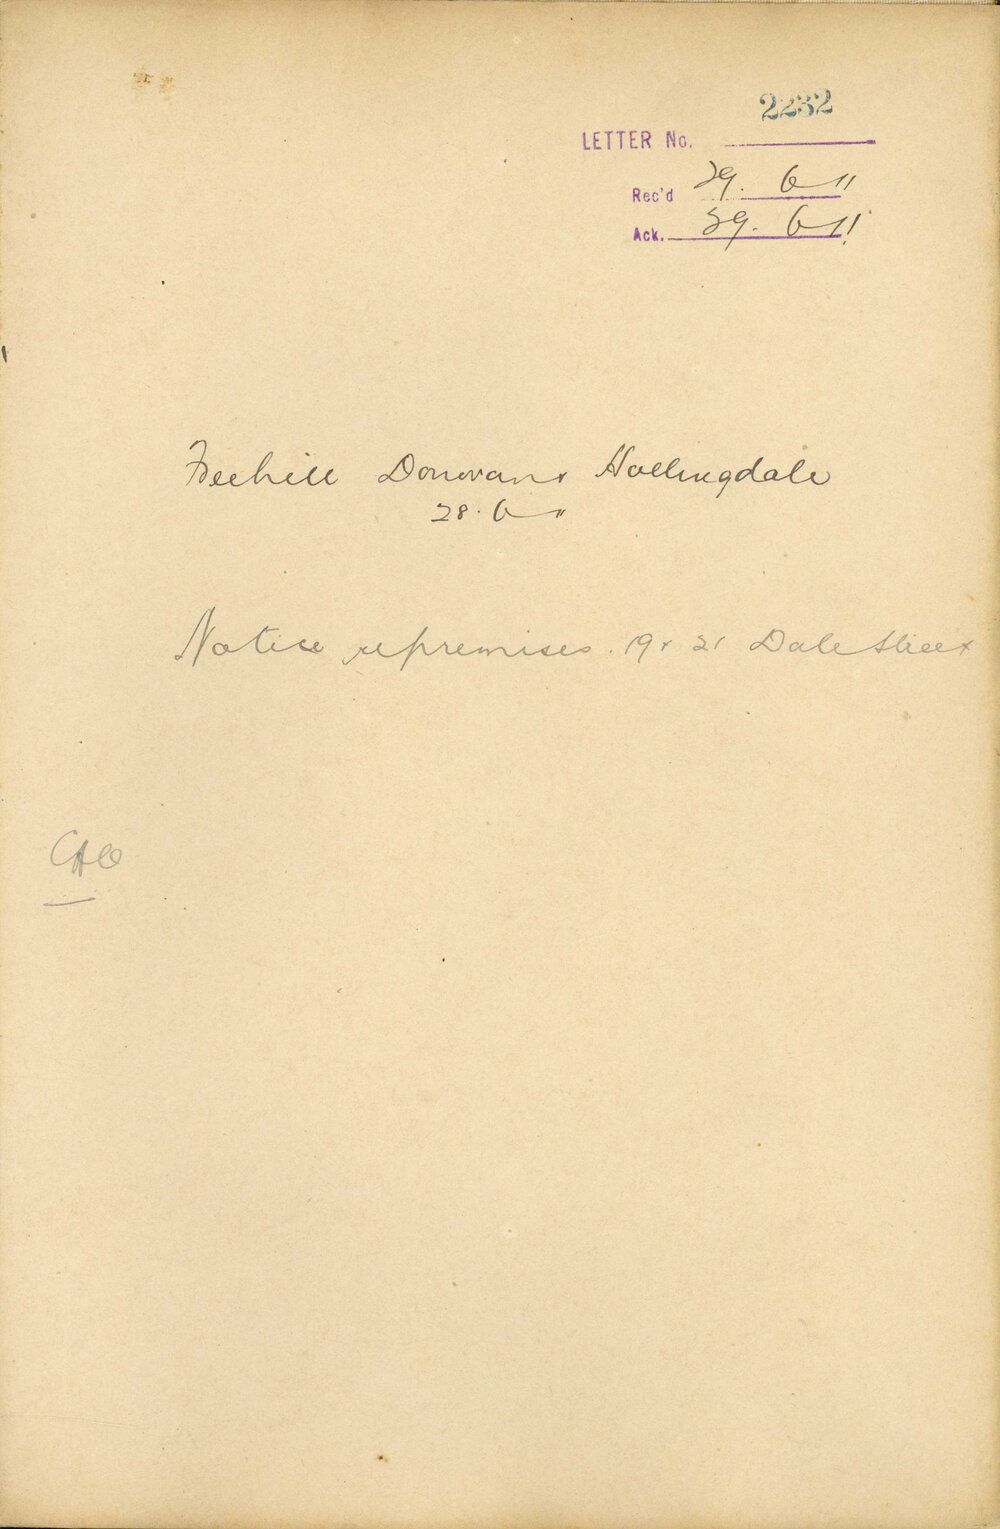 2232
LETTER No.
Rec'd 29. 6 11
Ack. 29. 6 11
Freehill Donovan & Hollingdale
28. 6 11
Notice re premises. 19 & 21 Dale Street